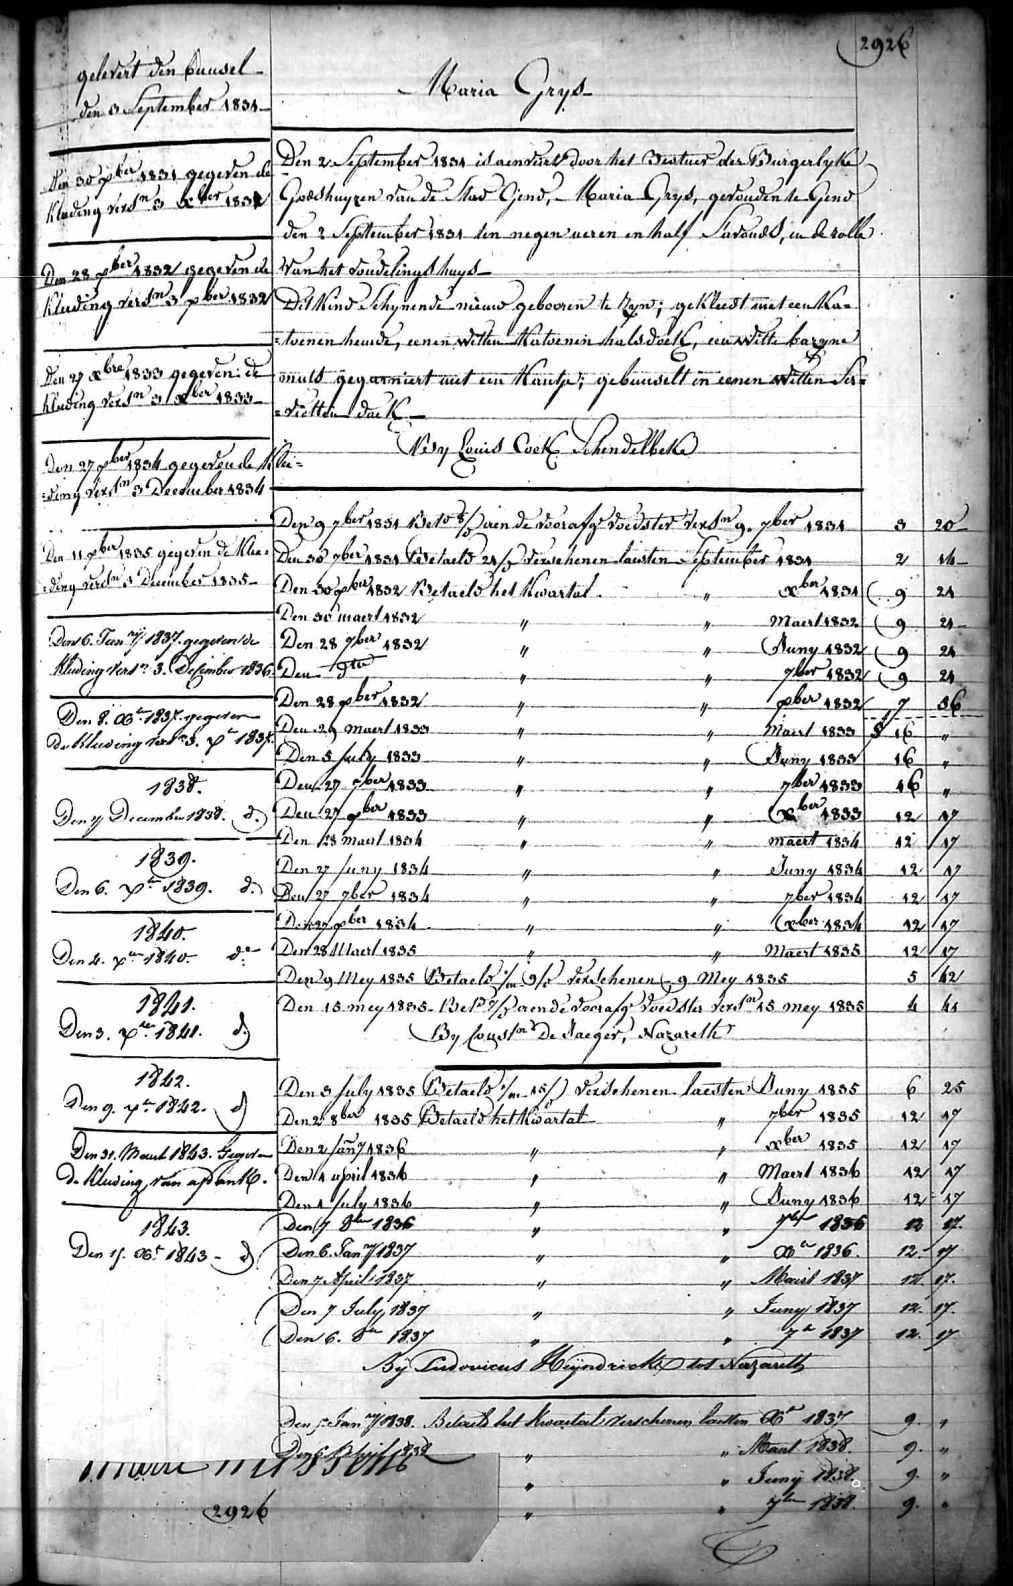 2926
Maria Grys
gelevert den bunsel
den 3 September 1831
Den 30 xber 1831 gegeven de
kleeding versn 3 xber 1831
Den 28 xber 1832 gegeven de
kleeding versn 3 xber 1832
Den 27 xbre 1833 gegeven de
kleeding versn 3 xber 1833
Den 27 xber 1834 gegeven de klee=
=ding versn 3 December 1834
Den 11 xber 1835 gegeven de klee=
=ding versn 3 December 1835
Den 6. Jany 1837. gegeven de
kleeding versn 3. December 1836
Den 8. Xbr 1837. gegeven
de kleeding versn 3. Xr 1837.
1838.
Den 7 December 1838. d.
1839.
Den 6. Xer 1839. d.
1840.
Den 4. Xer 1840. do
1841.
Den 3. Xer 1841. d.
1842.
Den 9. Xer 1842. d
Den 31. Maert 1843. Gegeven
de kleeding van
1843.
Den 15. Xbr 1843 d
Den 2 September 1831 is aenveert door het Bestuer der Burgerlyke
Godshuyzen van de Stad Gend, Maria Grys, gevonden te Gend
den 2 September 1831 ten negen ueren en half Savonds, in de rolle
van het vondelings huys
Dit Kind Schynende nieuw gebooren te zyn; gekleedt met een Ka=
=toenen hemde, eenen witten Katoenen halsdoek, een witte bazyne
muts gegarniert met een Kantje; gebunselt in eenen witten Ser=
=vietten doek
Bey Louis Cock Schendelbeke
Den 9 7ber 1831 Beto aen de voorafge voedster versn 9. 7ber 1831 3 20
Den 30 7ber 1831 Betaeld 21/ verschenen laesten September 1831 2 14
Den 30 xber 1832 Betaeld het Kwartal " xber 1831 9 24
Den 30 maert 1832 " " Maert 1832 9 24
Den 28 7ber 1832 " " Juny 1832 9 24
Den dto " " 7ber 1832 9 24
Den 28 xber 1832 " " xber 1832 7 36
Den 29 maert 1833 " " Maert 1833 16 "
Den 5 July 1833 " " Juny 1833 16 "
Den 27 7ber 1833 " " 7ber 1833 16 "
Den 27 xber 1833 " " xber 1833 12 17
Den 28 maert 1834 " " maert 1834 12 17
Den 27 Juny 1834 " " Juny 1834 12 17
Den 27 7ber 1834 " " 7ber 1834 12 17
Den 27 xber 1834 " " xber 1834 12 17
Den 28 Maert 1835 " " Maert 1835 12 17
Den 9 Mey 1835 Betaeld verschenen 9 Mey 1835 5 42
Den 15 mey 1835 aen de voorafge voedster versn 15 mey 1835 4 44
By Constn De Naeger, Nazareth
Den 3 July 1835 Betaeld verschenen laesten Juny 1835 6 25
Den 2 8ber 1835 Betaeld het Kwartal " 7ber 1835 12 17
Den 2 Jany 1836 " " xber 1835 12 17
Den 4 april 1836 " " Maert 1836 12 17
Den 1 July 1836 " " Juny 1836 12 17
Den 7 8ber 1836 " " 7ber 1836 12 17.
Den 6. Jany 1837 " " Xbr 1836. 12 17
Den 7 April 1837 " " Maert 1837 12 17.
Den 7 July 1837 " " Juny 1837 12. 17.
Den 6. 8br 1837 " " 7br 1837 12. 17
By Ludovicus Heyndrickx tot Nazareth
Den 5 Jany 1838. Betaeld het Kwartal verschenen laesten Xbr 1837 9. "
" " Maert 1838. 9. "
" " Juny 1838. 9. "
" " 7ber 1838. 9. "
2926